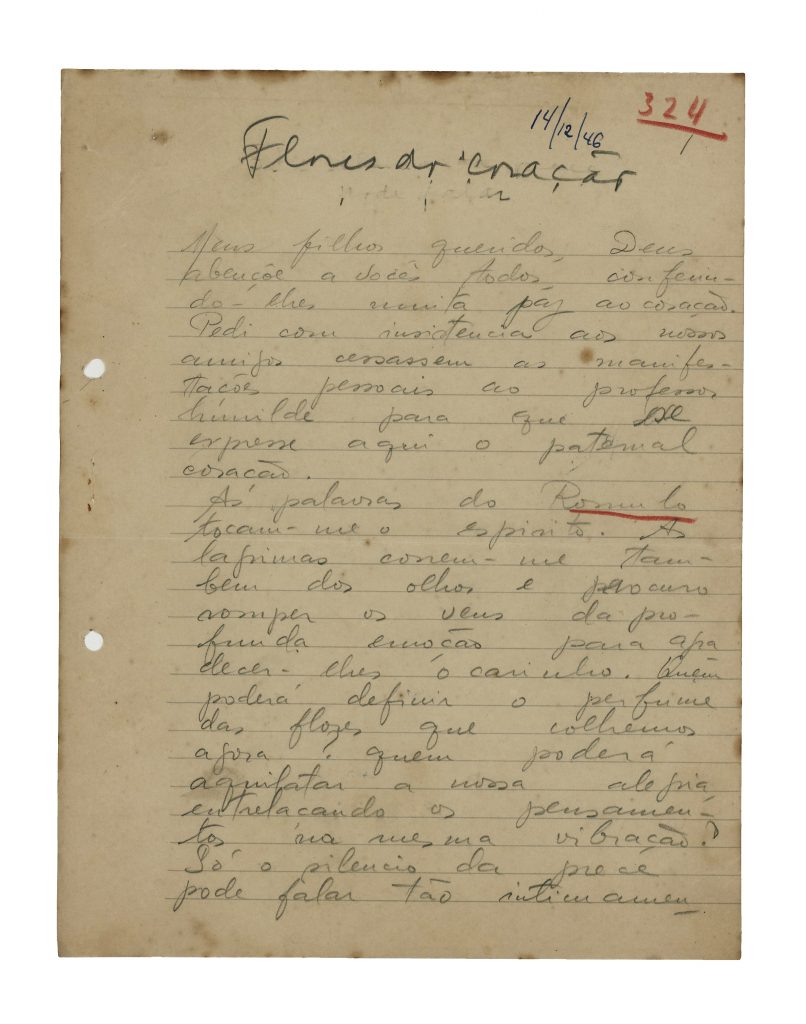 324
14/12/46
Flores do coração
Meus filhos queridos, Deus
abençõe a vocês todos, conferin-
do-lhes muita páz ao coração.
Pedi com insistencia aos nossos
amigos cessassem as manifes-
tações pessoais ao professor
húmilde para que se
expresse aqui o paternal
coração.
As palavras do Romulo
tocam-me o espirito. As
lagrimas correm-me tam-
bem dos olhos e procuro
romper os veus da pro-
funda emoção para agra
decer-lhes o carinho. Quem
poderá definir o perfume
das flores que colhemos
agora? quem poderá
aquilatar a nossa alegria,
entrelaçando os pensamen-
tos na mesma vibração?
Só o silencio da prece
pode falar tão intimamen_